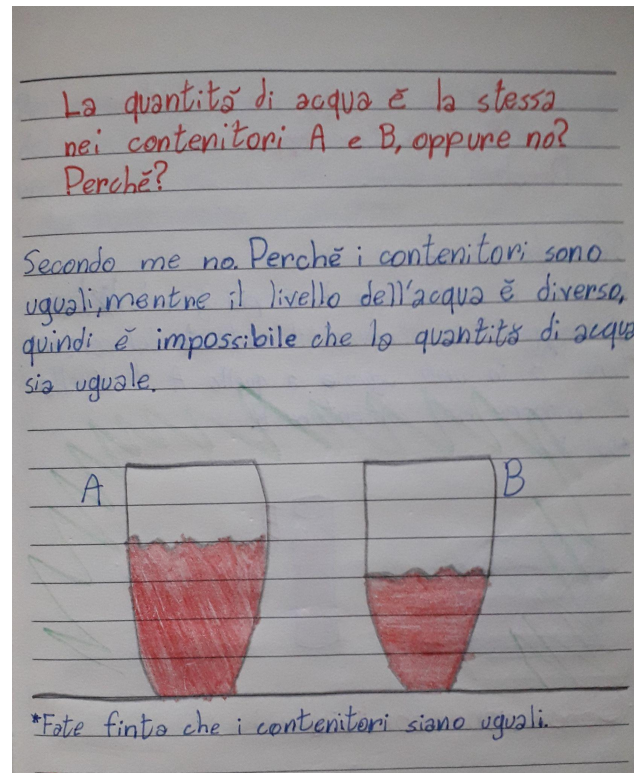 La quantità di acqua è la stessa
nei contenitori A e B, oppure no?
Perchè?
Secondo me no. Perchè i contenitori sono
uguali, mentre il livello dell'acqua è diverso,
quindi è impossibile che la quantità di acqua
sia uguale.
A
B
*Fate finta che i contenitori siano uguali.